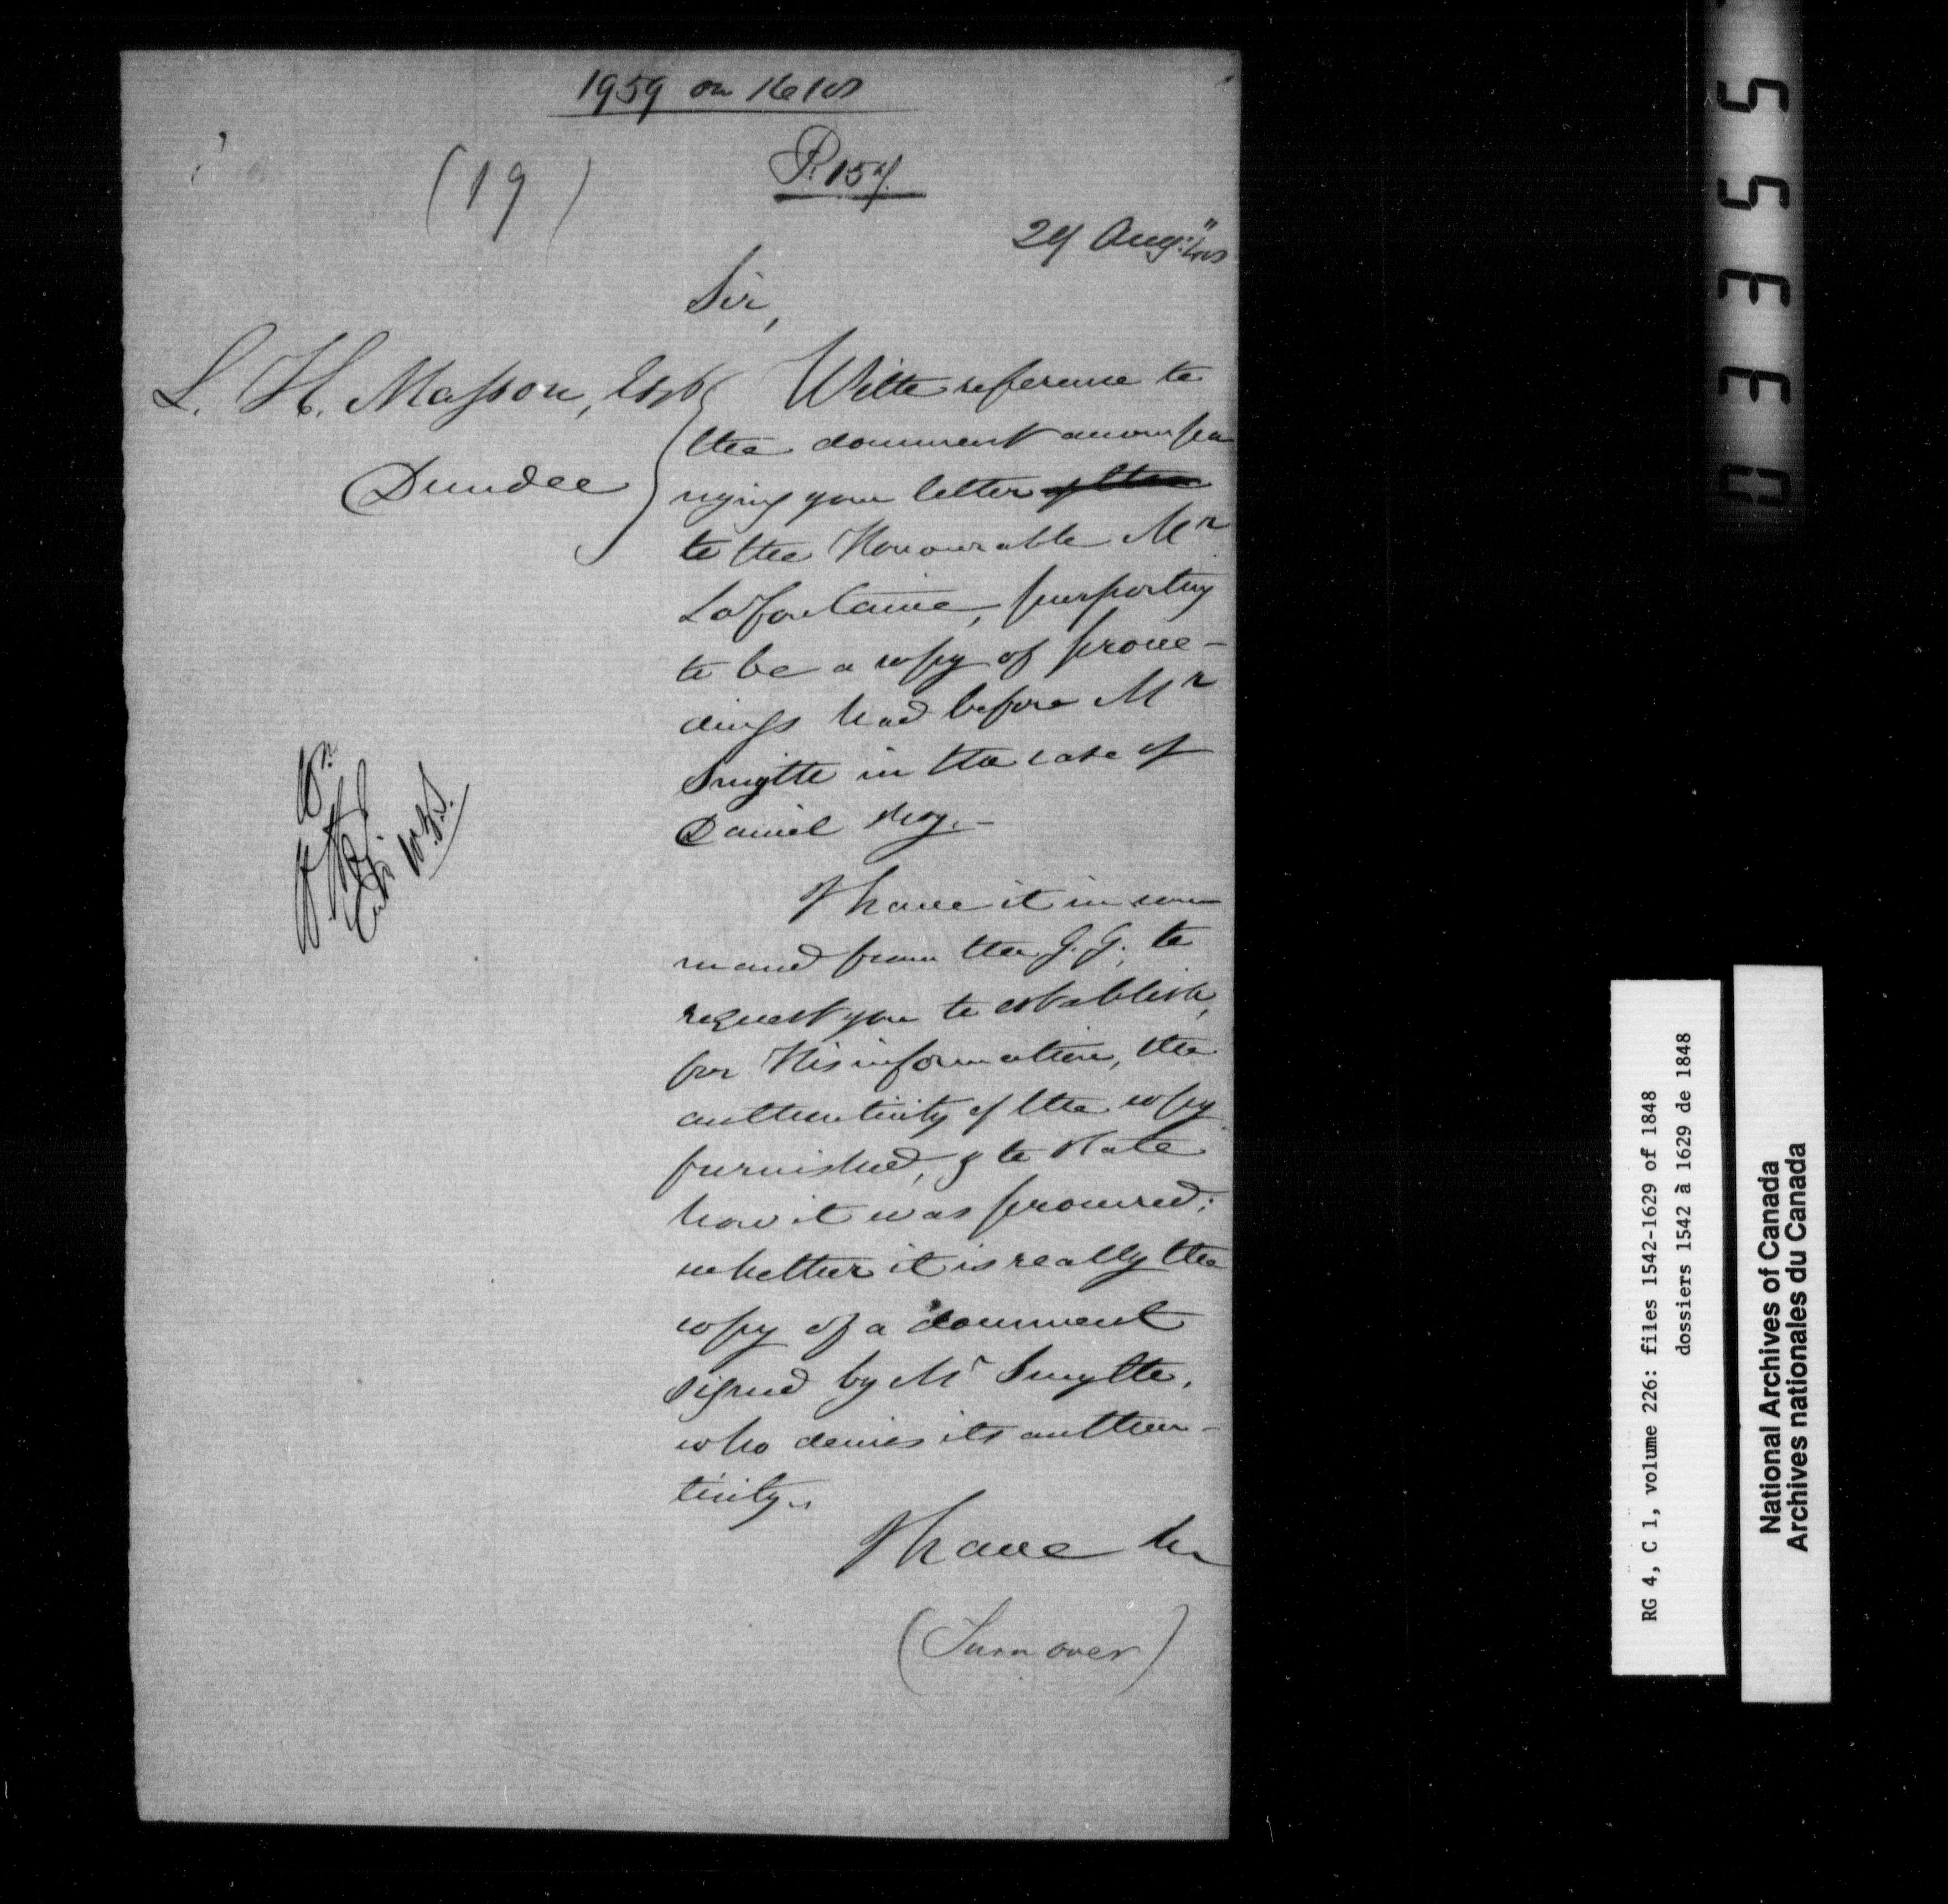 1959 on 1610
(19)
P. 157.
29 Aug:
Sir,
L. H. Masson, Esq
Dundee
With reference to
the document accompa
nying your letter of the
to the Honourable Mr
Lafontaine, purporting
to be a copy of procee-
dings had before Mr
Smyth in the case of
Daniel
I have it in com
mand from the G. G. to
request you to establish,
for His information, the
authenticity of the copy
furnished, & to state
how it was procured;
whether it is really the
copy of a document
signed by Mr Smythe,
who denies its authen-
ticity.
I have &c
(Turn over)
03355
RG 4, C 1, volume 226: files 1542-1629 of 1848
dossiers 1542 à 1629 de 1848
National Archives of Canada
Archives nationales du Canada